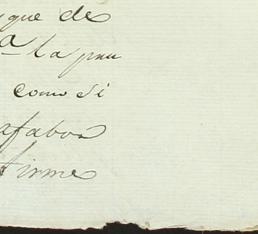 que de
a
la peu
como si
afabor
firme